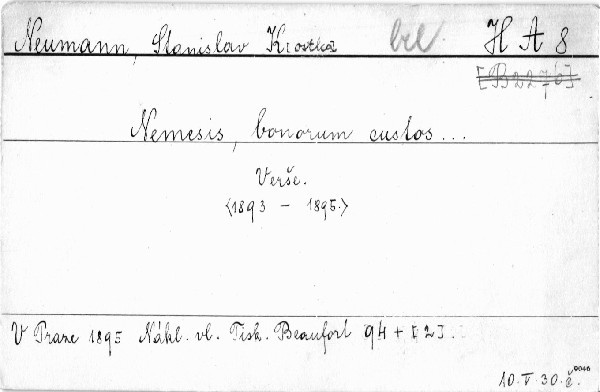 Neumann, Stanislav Kostka brl H A 8
[B 2276]
Nemesis, bonorum custos...
Verše.
<1893 - 1895.>
V Praze 1895 Nákl. vl. Tisk. Beaufort 94 + [2].
10.V.30.č. 0046